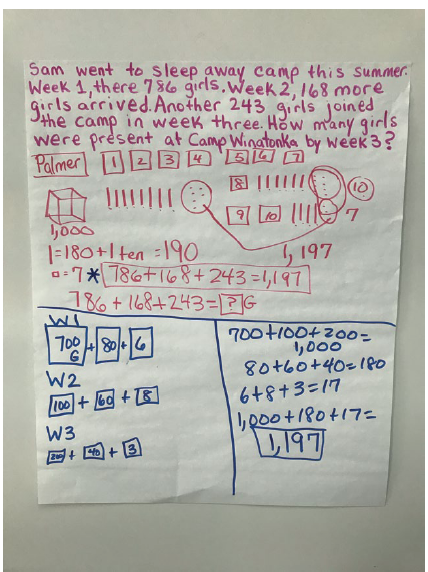 Sam went to sleep away camp this summer.
Week 1, there 786 girls. Week 2, 168 more
girls arrived. Another 243 girls joined
the camp in week three. How many girls
were present at Camp Winatonka by week 3?
Palmer 1 2 3 4 5 6 7
8 10
9 10 7
1,000
1,197
|=180+1 ten=190
▫=7 * 786+168+243=1,197
786+168+243=?G
W1
700 G + 80 + 6
W2
100 + 60 + 8
W3
200 + 40 + 3
700+100+200=
1,000
80+60+40=180
6+8+3=17
1,000+180+17=
1,197